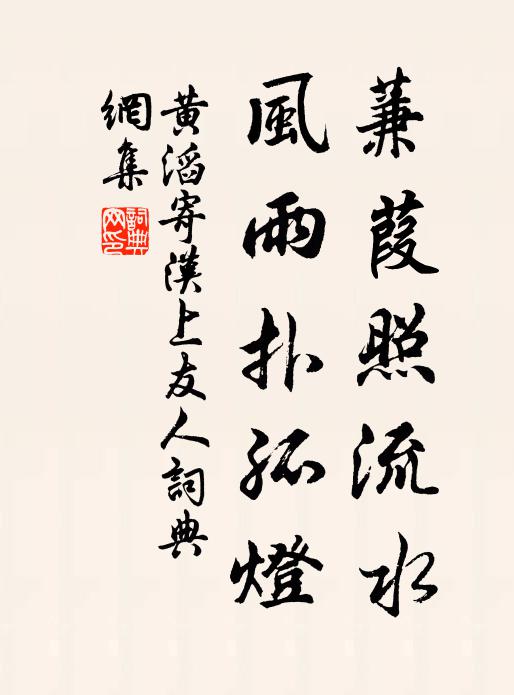 蒹葭照流水
風雨扑孤燈
黄滔寄漢上友人詞典
網集
詞典
网印